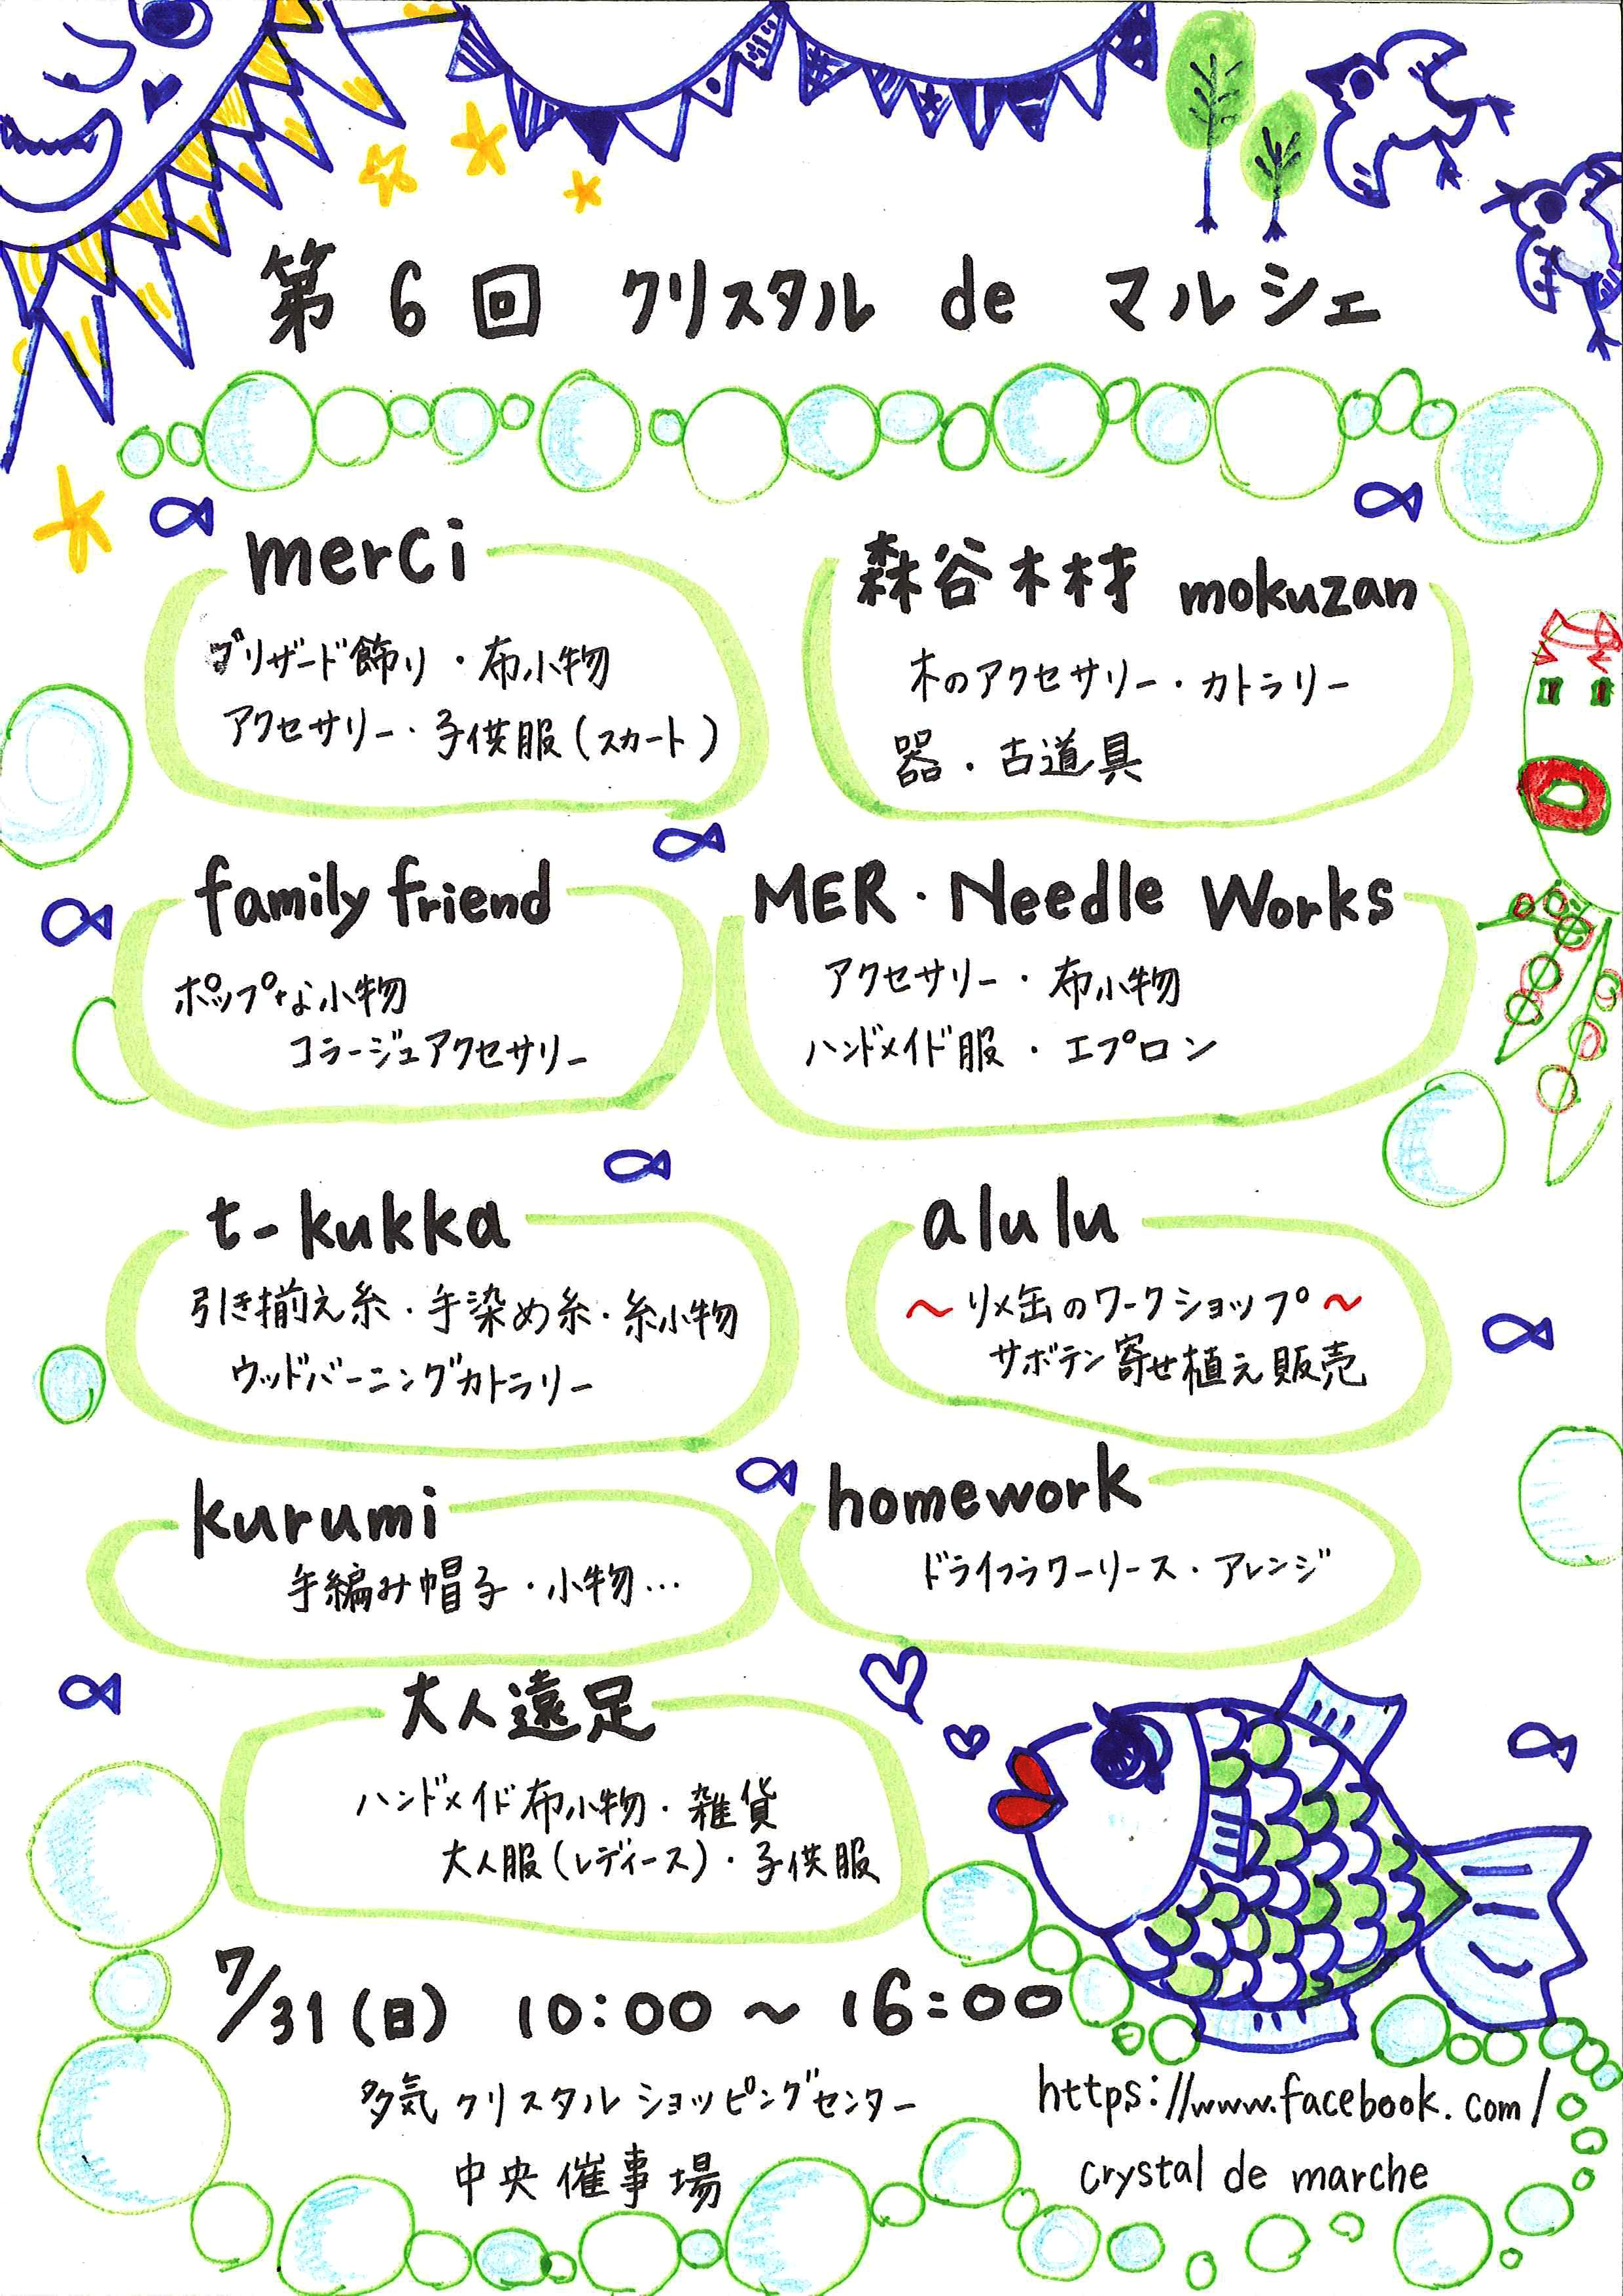 第6回 クリスタル de マルシェ
merci
ブリザード飾り・布小物
アクセサリー・子供服(スカート)
森谷木材 mokuzan
木のアクセサリー・カトラリー
器・古道具
family friend
ポップな小物
コラージュアクセサリー
MER・Needle Works
アクセサリー・布小物
ハンドメイド服・エプロン
t-kukka
引き揃え糸・手染め糸・糸小物
ウッドバーニングカトラリー
alulu
〜リメ缶のワークショップ〜
サボテン寄せ植え販売
kurumi
手編み帽子・小物…
homework
ドライフラワーリース・アレンジ
大人遠足
ハンドメイド布小物・雑貨
大人服(レディース)・子供服
7/31(日) 10:00〜16:00
多気クリスタルショッピングセンター
中央催事場
https://www.facebook.com/
crystal de marche